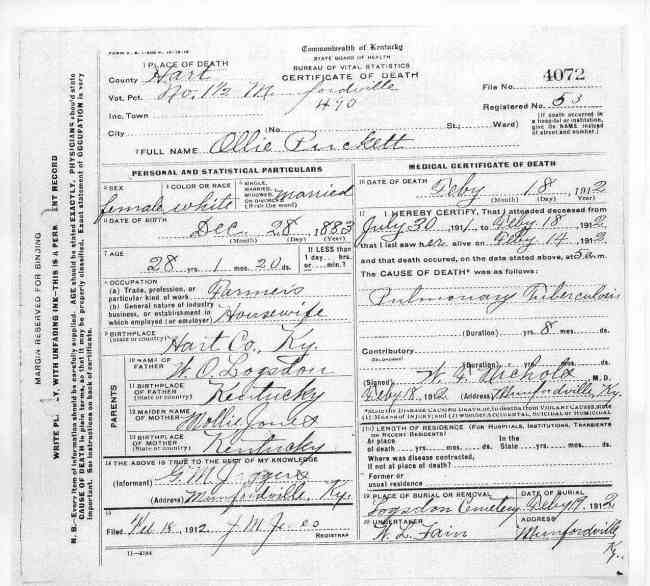 FORM V. S. 1
Commonwealth of Kentucky
STATE BOARD OF HEALTH
BUREAU OF VITAL STATISTICS
CERTIFICATE OF DEATH
1 PLACE OF DEATH
County Hart
Vot. Pct. No. 1½ Munfordville
490
Inc. Town
City (No. St.; Ward)
File No. 4072
Registered No. 53
[If death occurred in a hospital or institution, give its NAME instead of street and number.]
2 FULL NAME Ollie Puckett
PERSONAL AND STATISTICAL PARTICULARS
3 SEX female
4 COLOR OR RACE white
5 SINGLE, MARRIED, WIDOWED, OR DIVORCED (Write the word) married
6 DATE OF BIRTH
Dec 28 1883
(Month) (Day) (Year)
7 AGE
28 yrs. 1 mos. 20 ds.
If LESS than 1 day... hrs. or... min.?
8 OCCUPATION
(a) Trade, profession, or particular kind of work Farmers
(b) General nature of industry business, or establishment in which employed (or employer) Housewife
9 BIRTHPLACE
(State or country) Hart Co., Ky.
PARENTS
10 NAME OF FATHER W. O. Logsdon
11 BIRTHPLACE OF FATHER (State or country) Kentucky
12 MAIDEN NAME OF MOTHER Mollie Jones
13 BIRTHPLACE OF MOTHER (State or country) Kentucky
14 THE ABOVE IS TRUE TO THE BEST OF MY KNOWLEDGE
(Informant) G. M.
(Address) Munfordville, Ky.
15
Filed Feb 18, 1912 J. M.
REGISTRAR
11-4184
MEDICAL CERTIFICATE OF DEATH
16 DATE OF DEATH
Feby 18, 1912
(Month) (Day) (Year)
17 I HEREBY CERTIFY, That I attended deceased from
July 30, 1911, to Feby 18, 1912,
that I last saw her alive on Feby 14, 1912,
and that death occurred, on the date stated above, at 5 a.m.
The CAUSE OF DEATH* was as follows:
Pulmonary Tuberculosis
(Duration) yrs. 8 mos. ds.
Contributory
(SECONDARY)
(Duration) yrs. mos. ds.
(Signed) Nichols M. D.
Feby 18, 1912 (Address) Munfordville, Ky.
*State the DISEASE CAUSING DEATH, or, in deaths from VIOLENT CAUSES, state (1) MEANS OF INJURY; and (2) whether ACCIDENTAL, SUICIDAL or HOMICIDAL
18 LENGTH OF RESIDENCE (FOR HOSPITALS, INSTITUTIONS, TRANSIENTS OR RECENT RESIDENTS)
At place of death yrs. mos. ds.
In the State yrs. mos. ds.
Where was disease contracted, if not at place of death?
Former or usual residence
19 PLACE OF BURIAL OR REMOVAL
Logsdon Cemetery
DATE OF BURIAL
Feby 19, 1912
20 UNDERTAKER
Fain
ADDRESS
Munfordville Ky.
MARGIN RESERVED FOR BINDING
WRITE PL LY, WITH UNFADING INK—THIS IS A PERM NT RECORD
N. B.—Every item of information should be carefully supplied. AGE should be stated EXACTLY. PHYSICIANS should state
CAUSE OF DEATH in plain terms, so that it may be properly classified. Exact statement of OCCUPATION is very
important. See instructions on back of certificate.